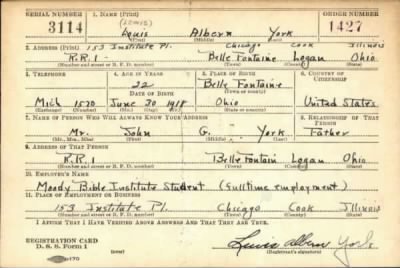 SERIAL NUMBER 1. NAME (Print) ORDER NUMBER
(LEWIS)
3114 Louis Albern York 1427
(First) (Middle) (Last)
2. ADDRESS (Print) 153 Institute Pl. Chicago Cook Illinois
R.R. 1 Belle Fontaine Logan Ohio
(Number and street or R. F. D. number) (Town) (County) (State)
3. TELEPHONE 4. AGE IN YEARS 5. PLACE OF BIRTH 6. COUNTRY OF CITIZENSHIP
22 Belle Fontaine
DATE OF BIRTH (Town or county)
Mich 1570 June 30 1918 Ohio United States
(Exchange) (Number) (Mo.) (Day) (Yr.) (State or country)
7. NAME OF PERSON WHO WILL ALWAYS KNOW YOUR ADDRESS 8. RELATIONSHIP OF THAT PERSON
Mr. John G. York Father
(Mr., Mrs., Miss) (First) (Middle) (Last)
9. ADDRESS OF THAT PERSON
R.R. 1 Belle Fontain Logan Ohio
(Number and street or R. F. D. number) (Town) (County) (State)
10. EMPLOYER'S NAME
Moody Bible Institute Student (fulltime employment)
11. PLACE OF EMPLOYMENT OR BUSINESS
153 Institute Pl. Chicago Cook Illinois
(Number and street or R. F. D. number) (Town) (County) (State)
I AFFIRM THAT I HAVE VERIFIED ABOVE ANSWERS AND THAT THEY ARE TRUE.
REGISTRATION CARD
D. S. S. Form 1 (over) Louis Albern York
(Registrant's signature)